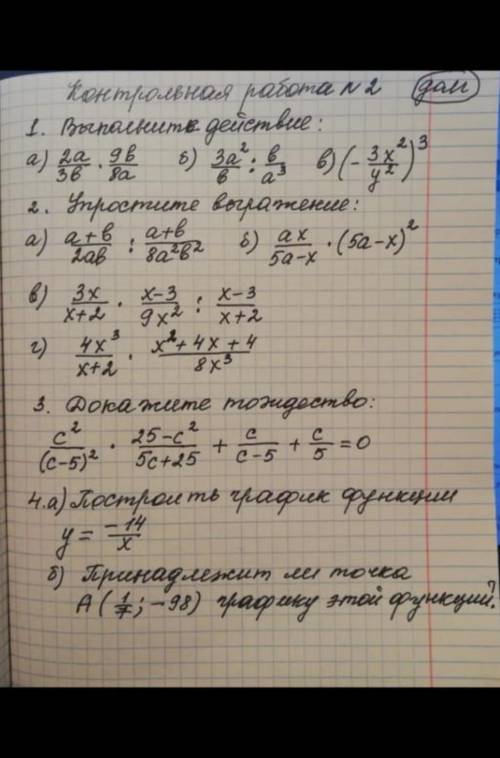 Контрольная работа №2 дом
1. Выполнить действие:
а) 2a/3b · 9b/8a б) 3a²/b : b/a³ в) (- 3x²/y²)³
2. Упростите выражение:
а) a+b/2ab : a+b/8a²b² б) ax/5a-x · (5a-x)²
в) 3x/x+2 · x-3/9x² : x-3/x+2
г) 4x³/x+2 · x²+4x+4/8x³
3. Докажите тождество:
c²/(c-5)² · 25-c²/5c+25 + c/c-5 + c/5 = 0
4.а) Построить график функции
y = -14/x
б) Принадлежит ли точка
А (1/7; -98) графику этой функции?